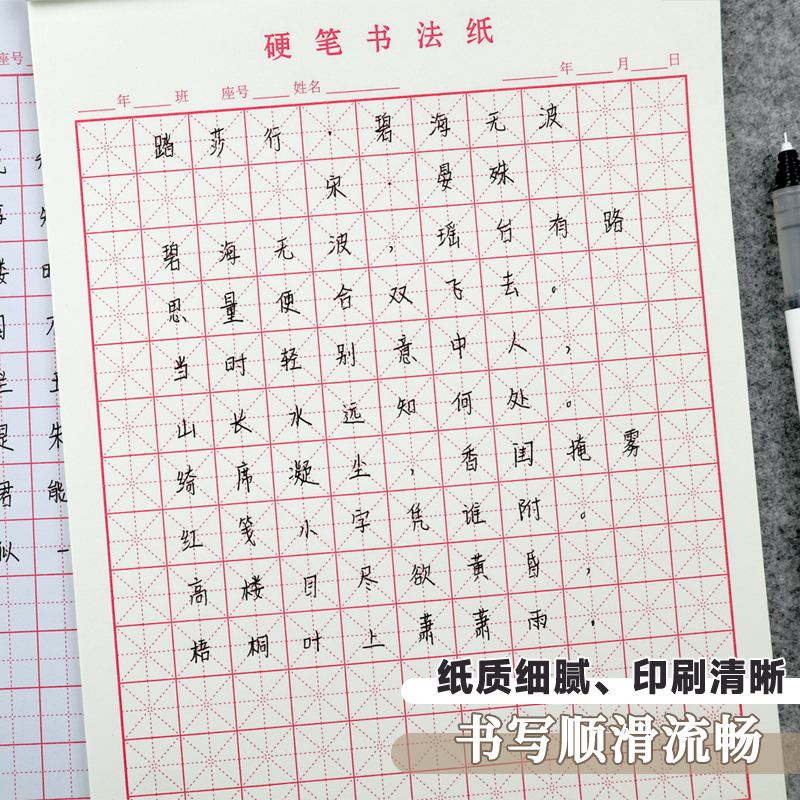 硬笔书法纸
年 班 座号 姓名 年 月 日
踏莎行·碧海无波
宋·晏殊
碧海无波，瑶台有路
思量便合双飞去。
当时轻别意中人，
山长水远知何处。
绮席凝尘，香闺掩雾
红笺小字凭谁附。
高楼目尽欲黄昏，
梧桐叶上萧萧雨.
座号
楼时
提朱
君能
似一
纸质细腻、印刷清晰
书写顺滑流畅